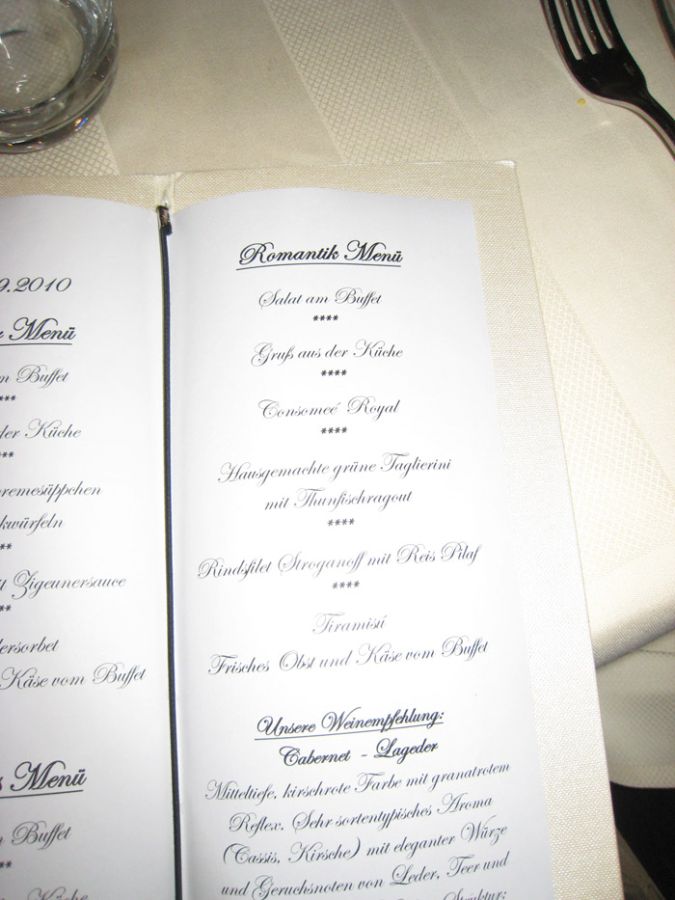 9.2010
Menü
Buffet
der Küche
Zigeunersauce
Käse vom Buffet
Menü
Buffet
Küche
Romantik Menü
Salat am Buffet
****
Gruß aus der Küche
****
Consomeé Royal
****
Hausgemachte grüne Taglierini
mit Thunfischragout
****
Rindsfilet Stroganoff mit Reis Pilaf
****
Tiramisú
Frisches Obst und Käse vom Buffet
Unsere Weinempfehlung:
Cabernet - Lageder
Mitteltiefe, kirschrote Farbe mit granatrotem
Reflex. Sehr sortentypisches Aroma
(Cassis, Kirsche) mit eleganter Würze
und Geruchsnoten von Leder, Teer und
Struktur: